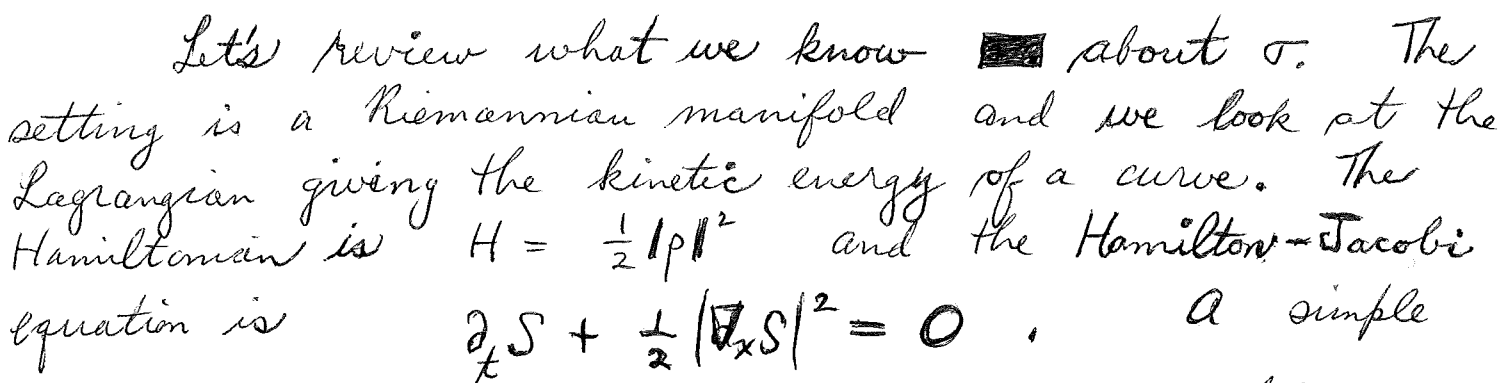 Let's review what we know about σ. The
setting is a Riemannian manifold and we look at the
Lagrangian giving the kinetic energy of a curve. The
Hamiltonian is H = ½|p|² and the Hamilton-Jacobi
equation is ∂ₜS + ½|∇ₓS|² = 0. A simple